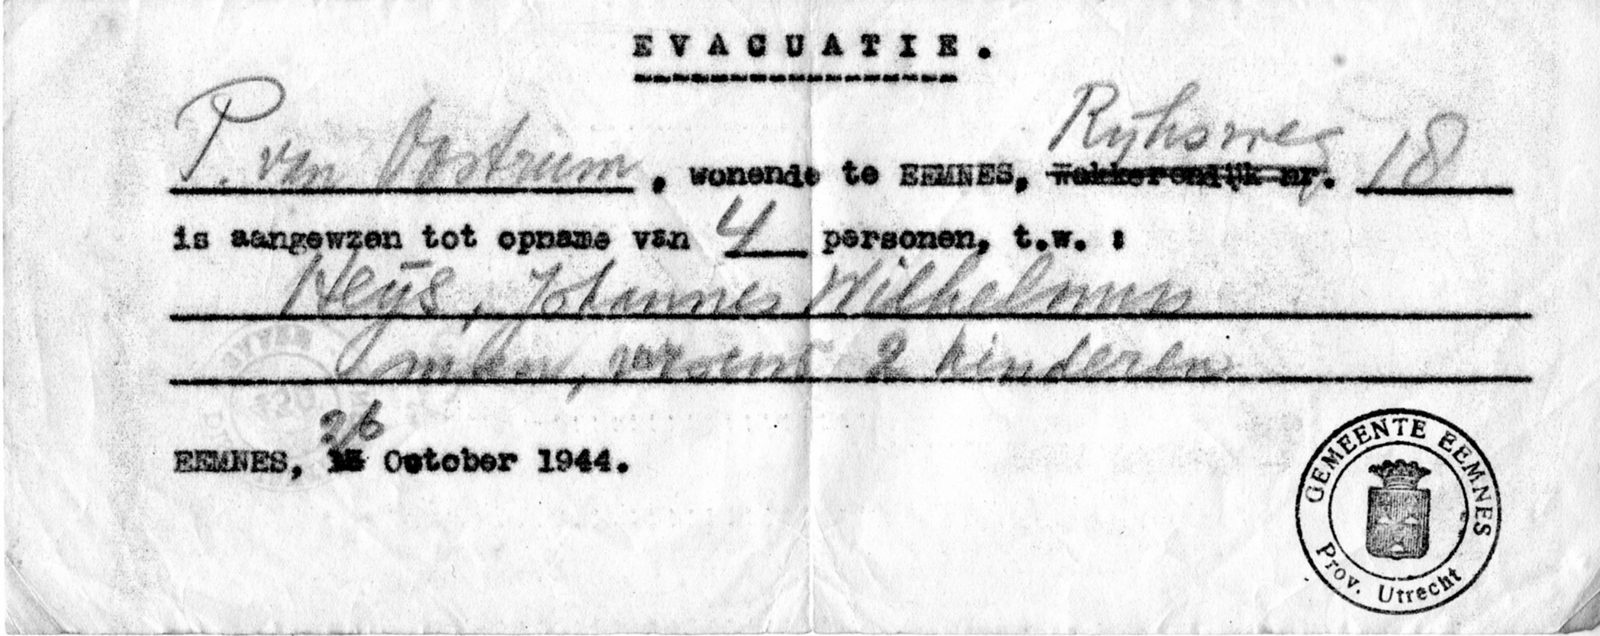 EVACUATIE.
P. van Oostrum, wonende te EEMNES, Wakkerendijk nr. Ryksweg 18
is aangewzen tot opname van 4 personen, t.w. :
Heÿs, Johannes Wilhelmus
man, vrouw 2 kinderen
EEMNES, 26 October 1944.
GEMEENTE EEMNES
Prov. Utrecht